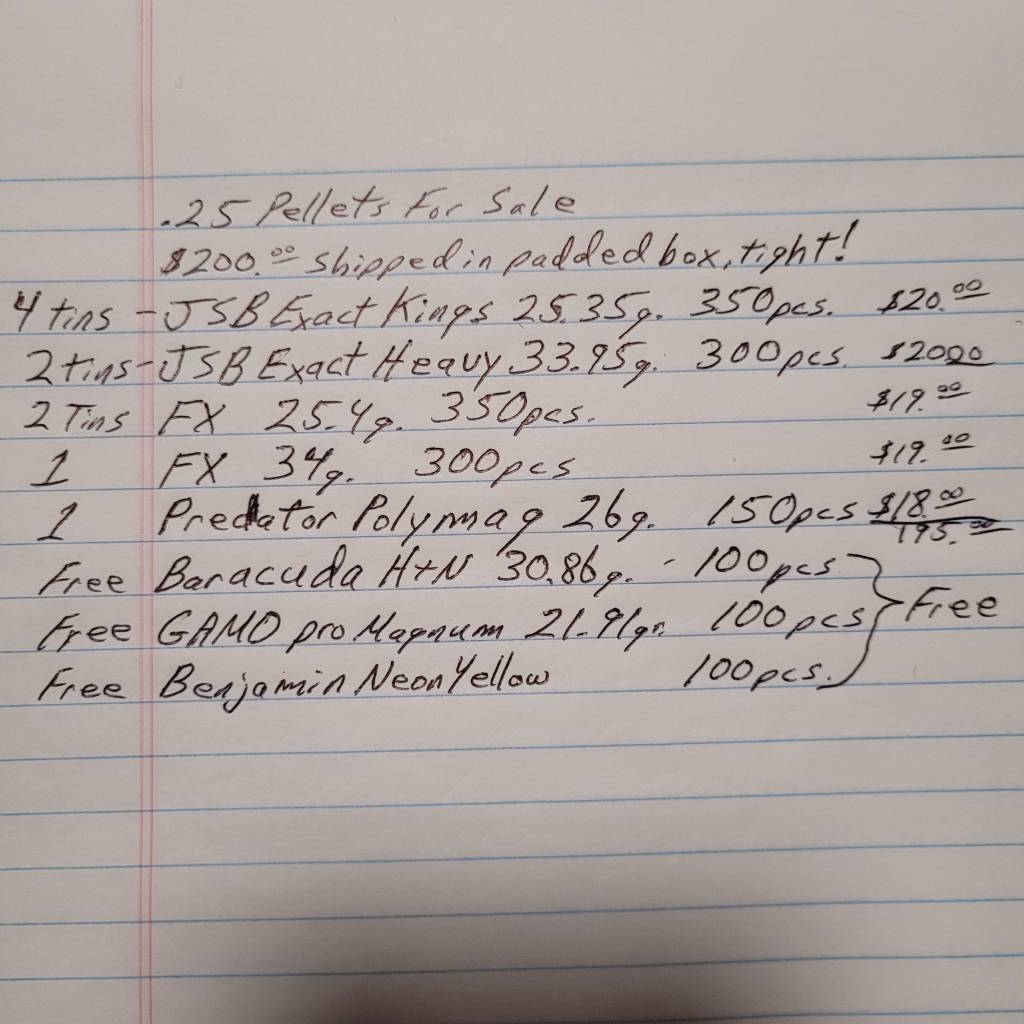 .25 Pellets For Sale
$200.00 shipped in padded box, tight!
4 tins - JSB Exact Kings 25.35g. 350pcs. $20.00
2 tins - JSB Exact Heavy 33.95g. 300pcs. $2000
2 Tins FX 25.4g. 350pcs. $19.00
1 FX 34g. 300pcs $19.00
1 Predator Polymag 26g. 150pcs $18.00
195.00
Free Baracuda H+N 30.86g. - 100pcs
Free GAMO pro Magnum 21.91gr. 100pcs Free
Free Benjamin Neon Yellow 100pcs.